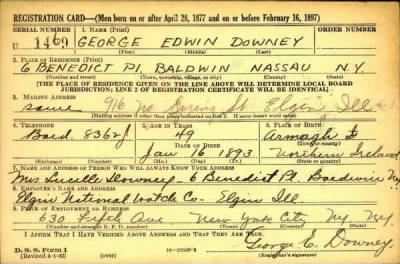 REGISTRATION CARD—(Men born on or after April 28, 1877 and on or before February 16, 1897)
SERIAL NUMBER 1. NAME (Print) ORDER NUMBER
U 1469 GEORGE EDWIN DOWNEY
(First) (Middle) (Last)
2. PLACE OF RESIDENCE (Print)
6 BENEDICT Pl BALDWIN NASSAU N.Y.
(Number and street) (Town, township, village, or city) (County) (State)
[THE PLACE OF RESIDENCE GIVEN ON THE LINE ABOVE WILL DETERMINE LOCAL BOARD
JURISDICTION; LINE 2 OF REGISTRATION CERTIFICATE WILL BE IDENTICAL]
3. MAILING ADDRESS
same 916 No. Spring St Elgin, Ill
(Mailing address if other than place indicated on line 2. If same insert word same)
4. TELEPHONE 5. AGE IN YEARS 6. PLACE OF BIRTH
Bald. 8362J 49 Armagh
DATE OF BIRTH
Jan 16 1893 Northern Ireland
(Exchange) (Number) (Mo.) (Day) (Yr.) (State or country)
7. NAME AND ADDRESS OF PERSON WHO WILL ALWAYS KNOW YOUR ADDRESS
Mrs Downey - 6 Benedict Pl. Baldwin NY
8. EMPLOYER'S NAME AND ADDRESS
Elgin National Watch Co - Elgin Ill.
9. PLACE OF EMPLOYMENT OR BUSINESS
630 Fifth Ave New York City Ny. Ny.
(Number and street or R. F. D. number) (Town) (County) (State)
I AFFIRM THAT I HAVE VERIFIED ABOVE ANSWERS AND THAT THEY ARE TRUE.
George E. Downey
D. S. S. Form 1
(Revised 4-1-42) (over) (Registrant's signature)